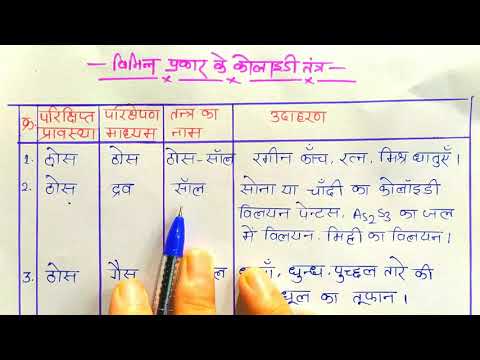 — विभिन्न प्रकार के कोलाइडी तंत्र —
क्र. परिक्षिप्त प्रावस्था परिक्षेपण माध्यम तन्त्र का नाम उदाहरण
1. ठोस ठोस ठोस-सॉल रंगीन काँच, रत्न, मिश्र धातुएँ।
2. ठोस द्रव सॉल सोना या चाँदी का कोलॉइडी
विलयन पेन्टस, As₂S₃ का जल
में विलयन, मिट्टी का विलयन।
3. ठोस गैस धुन्ध, पुच्छल तारे की
का तूफान।